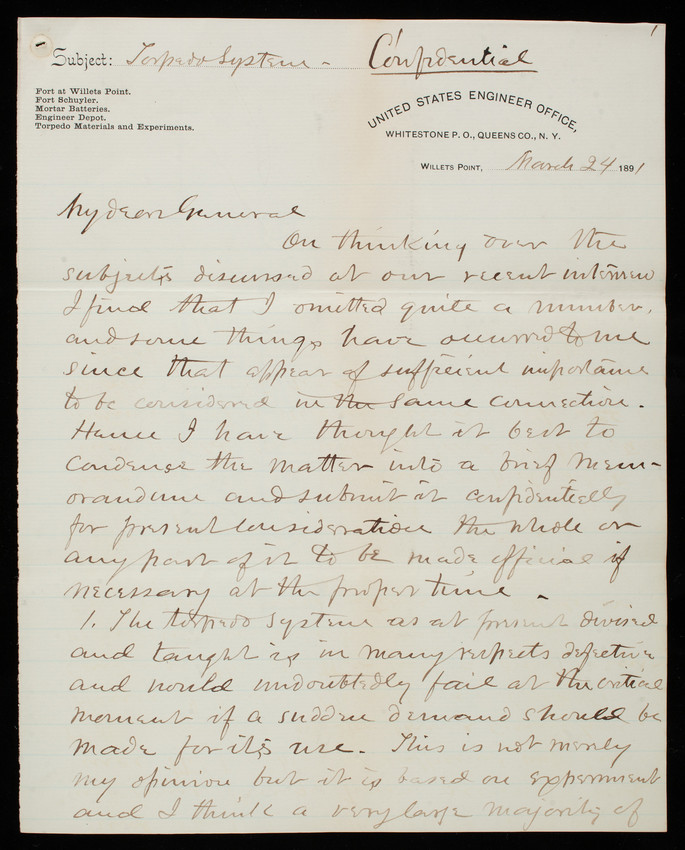 1
Subject: Torpedo System - Confidential
Fort at Willets Point.
Fort Schuyler.
Mortar Batteries.
Engineer Depot.
Torpedo Materials and Experiments.
UNITED STATES ENGINEER OFFICE,
WHITESTONE P. O., QUEENS CO., N. Y.
WILLETS POINT, March 24 1891
My dear General
On thinking over the
subjects discussed at our recent interview
I find that I omitted quite a number,
and some things have occurred to me
since that appear of sufficient importance
to be considered in the same connection.
Hence I have thought it best to
condense the matter into a brief mem-
orandum and submit it confidentially
for present consideration the whole or
any part of it to be made official if
necessary at the proper time.
1. The torpedo system as at present devised
and taught is in many respects defective
and would undoubtedly fail at the critical
moment if a sudden demand should be
made for its use. This is not merely
my opinion but it is based on experiment
and I think a very large majority of